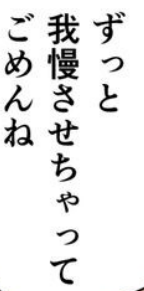 ずっと
我慢させちゃって
ごめんね